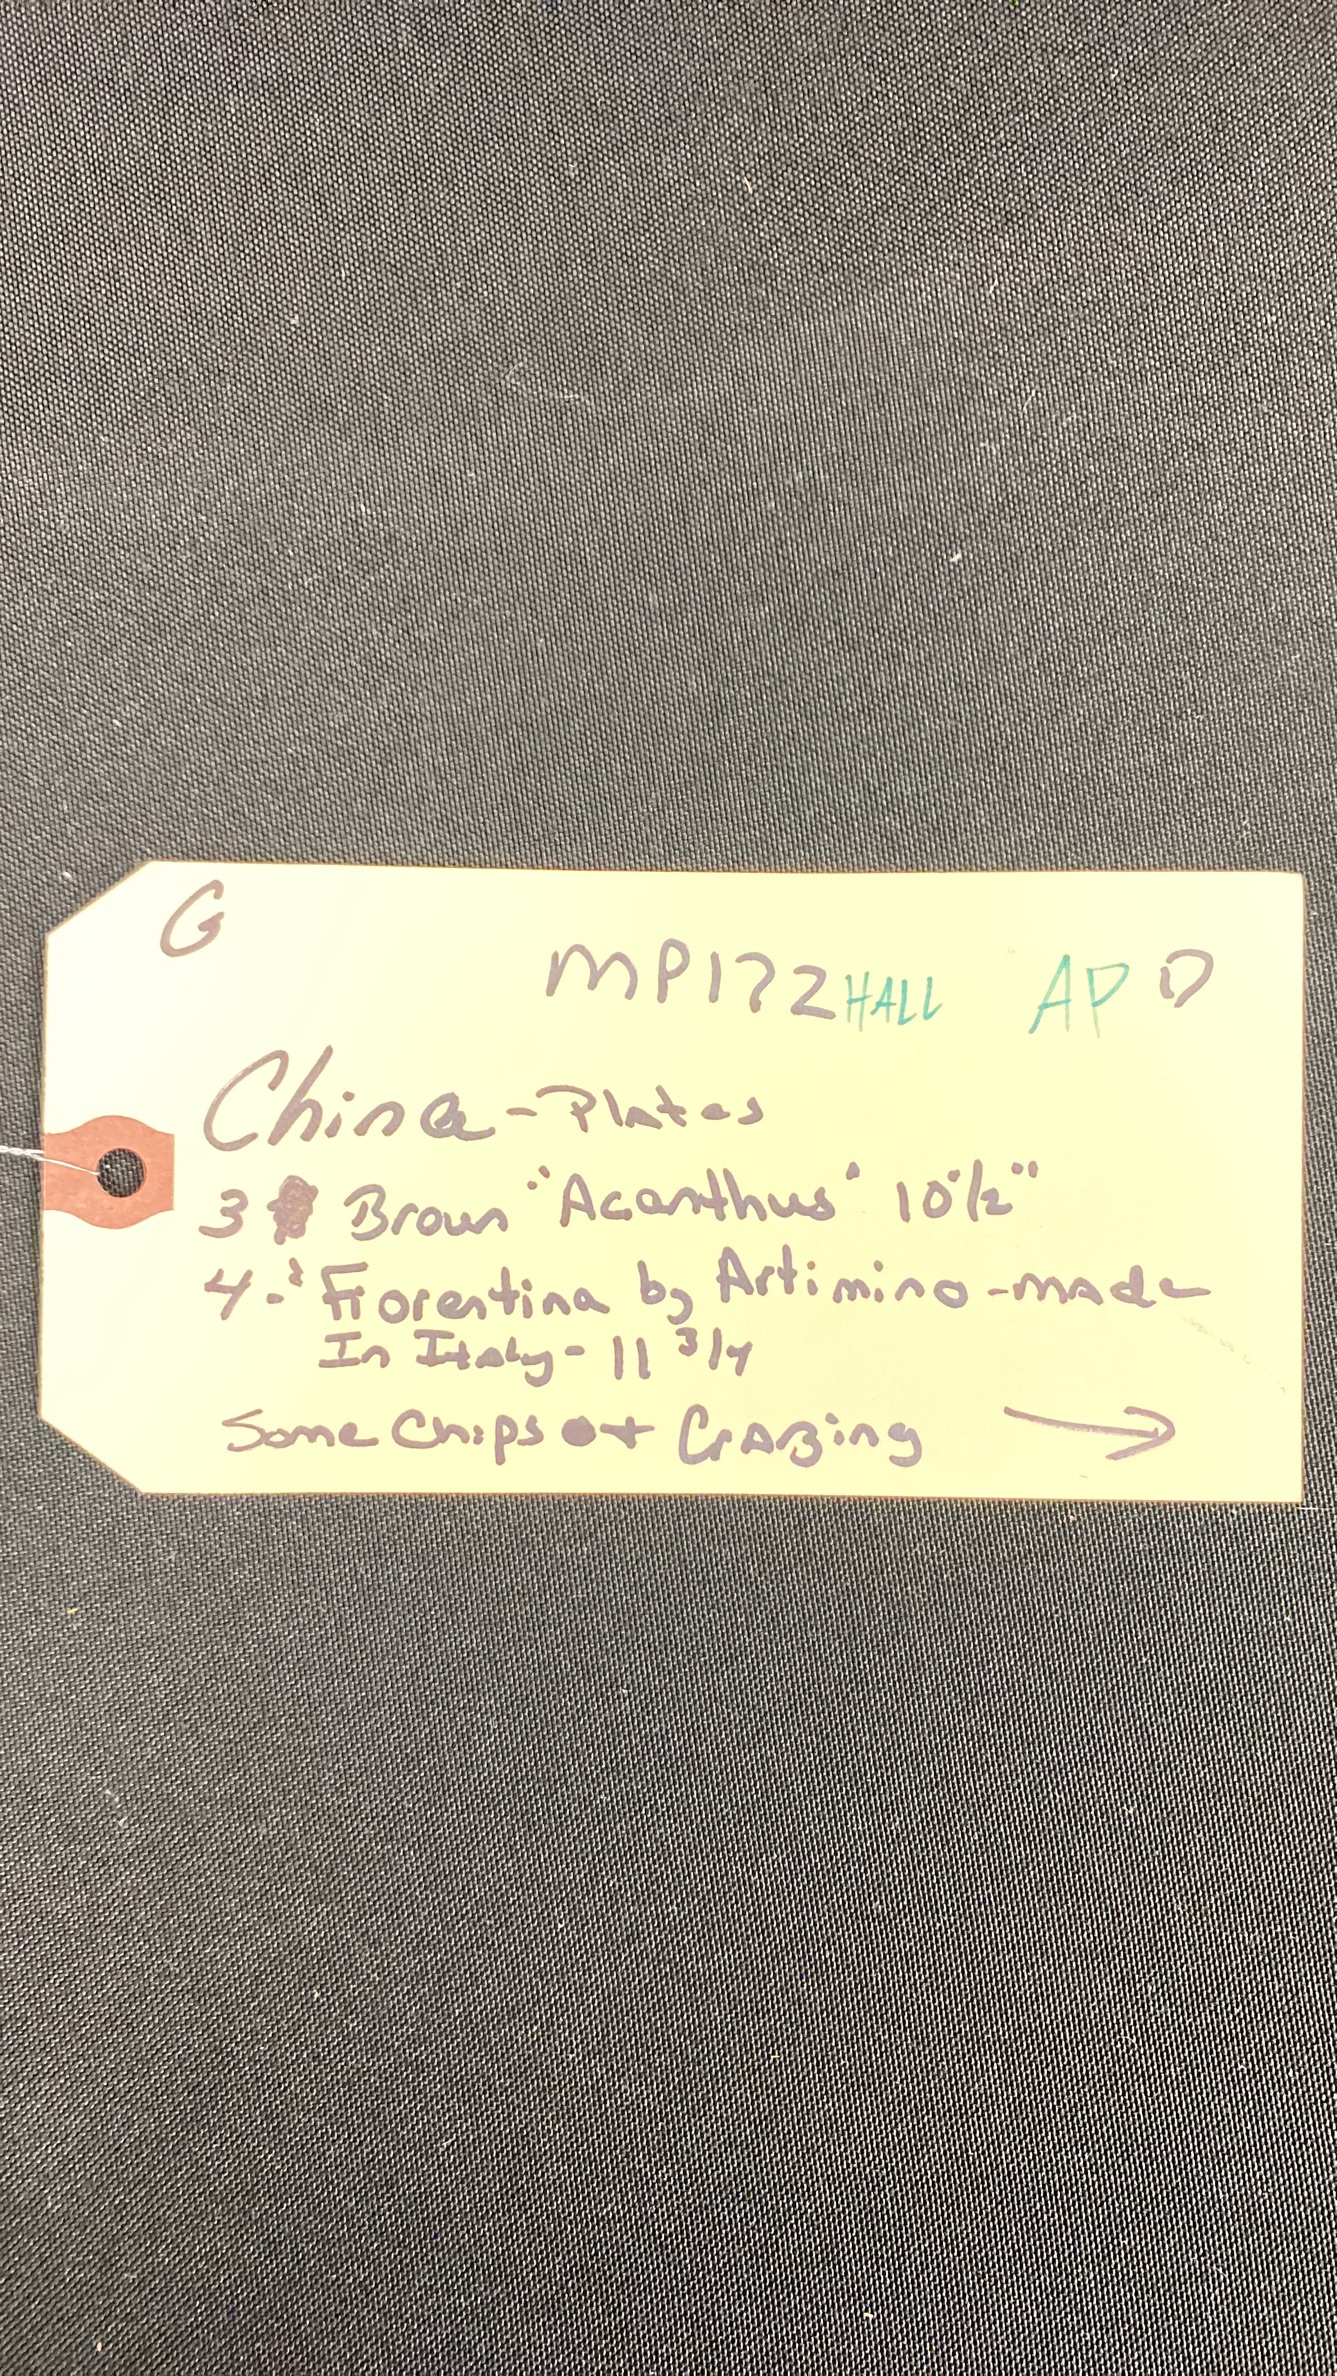 G
MP172 HALL AP D
China - Plates
3 Brown "Acanthus" 10 1/2"
4 - Fiorentina by Artimino - made
In Italy - 11 3/4
Some Chips + Crazing →